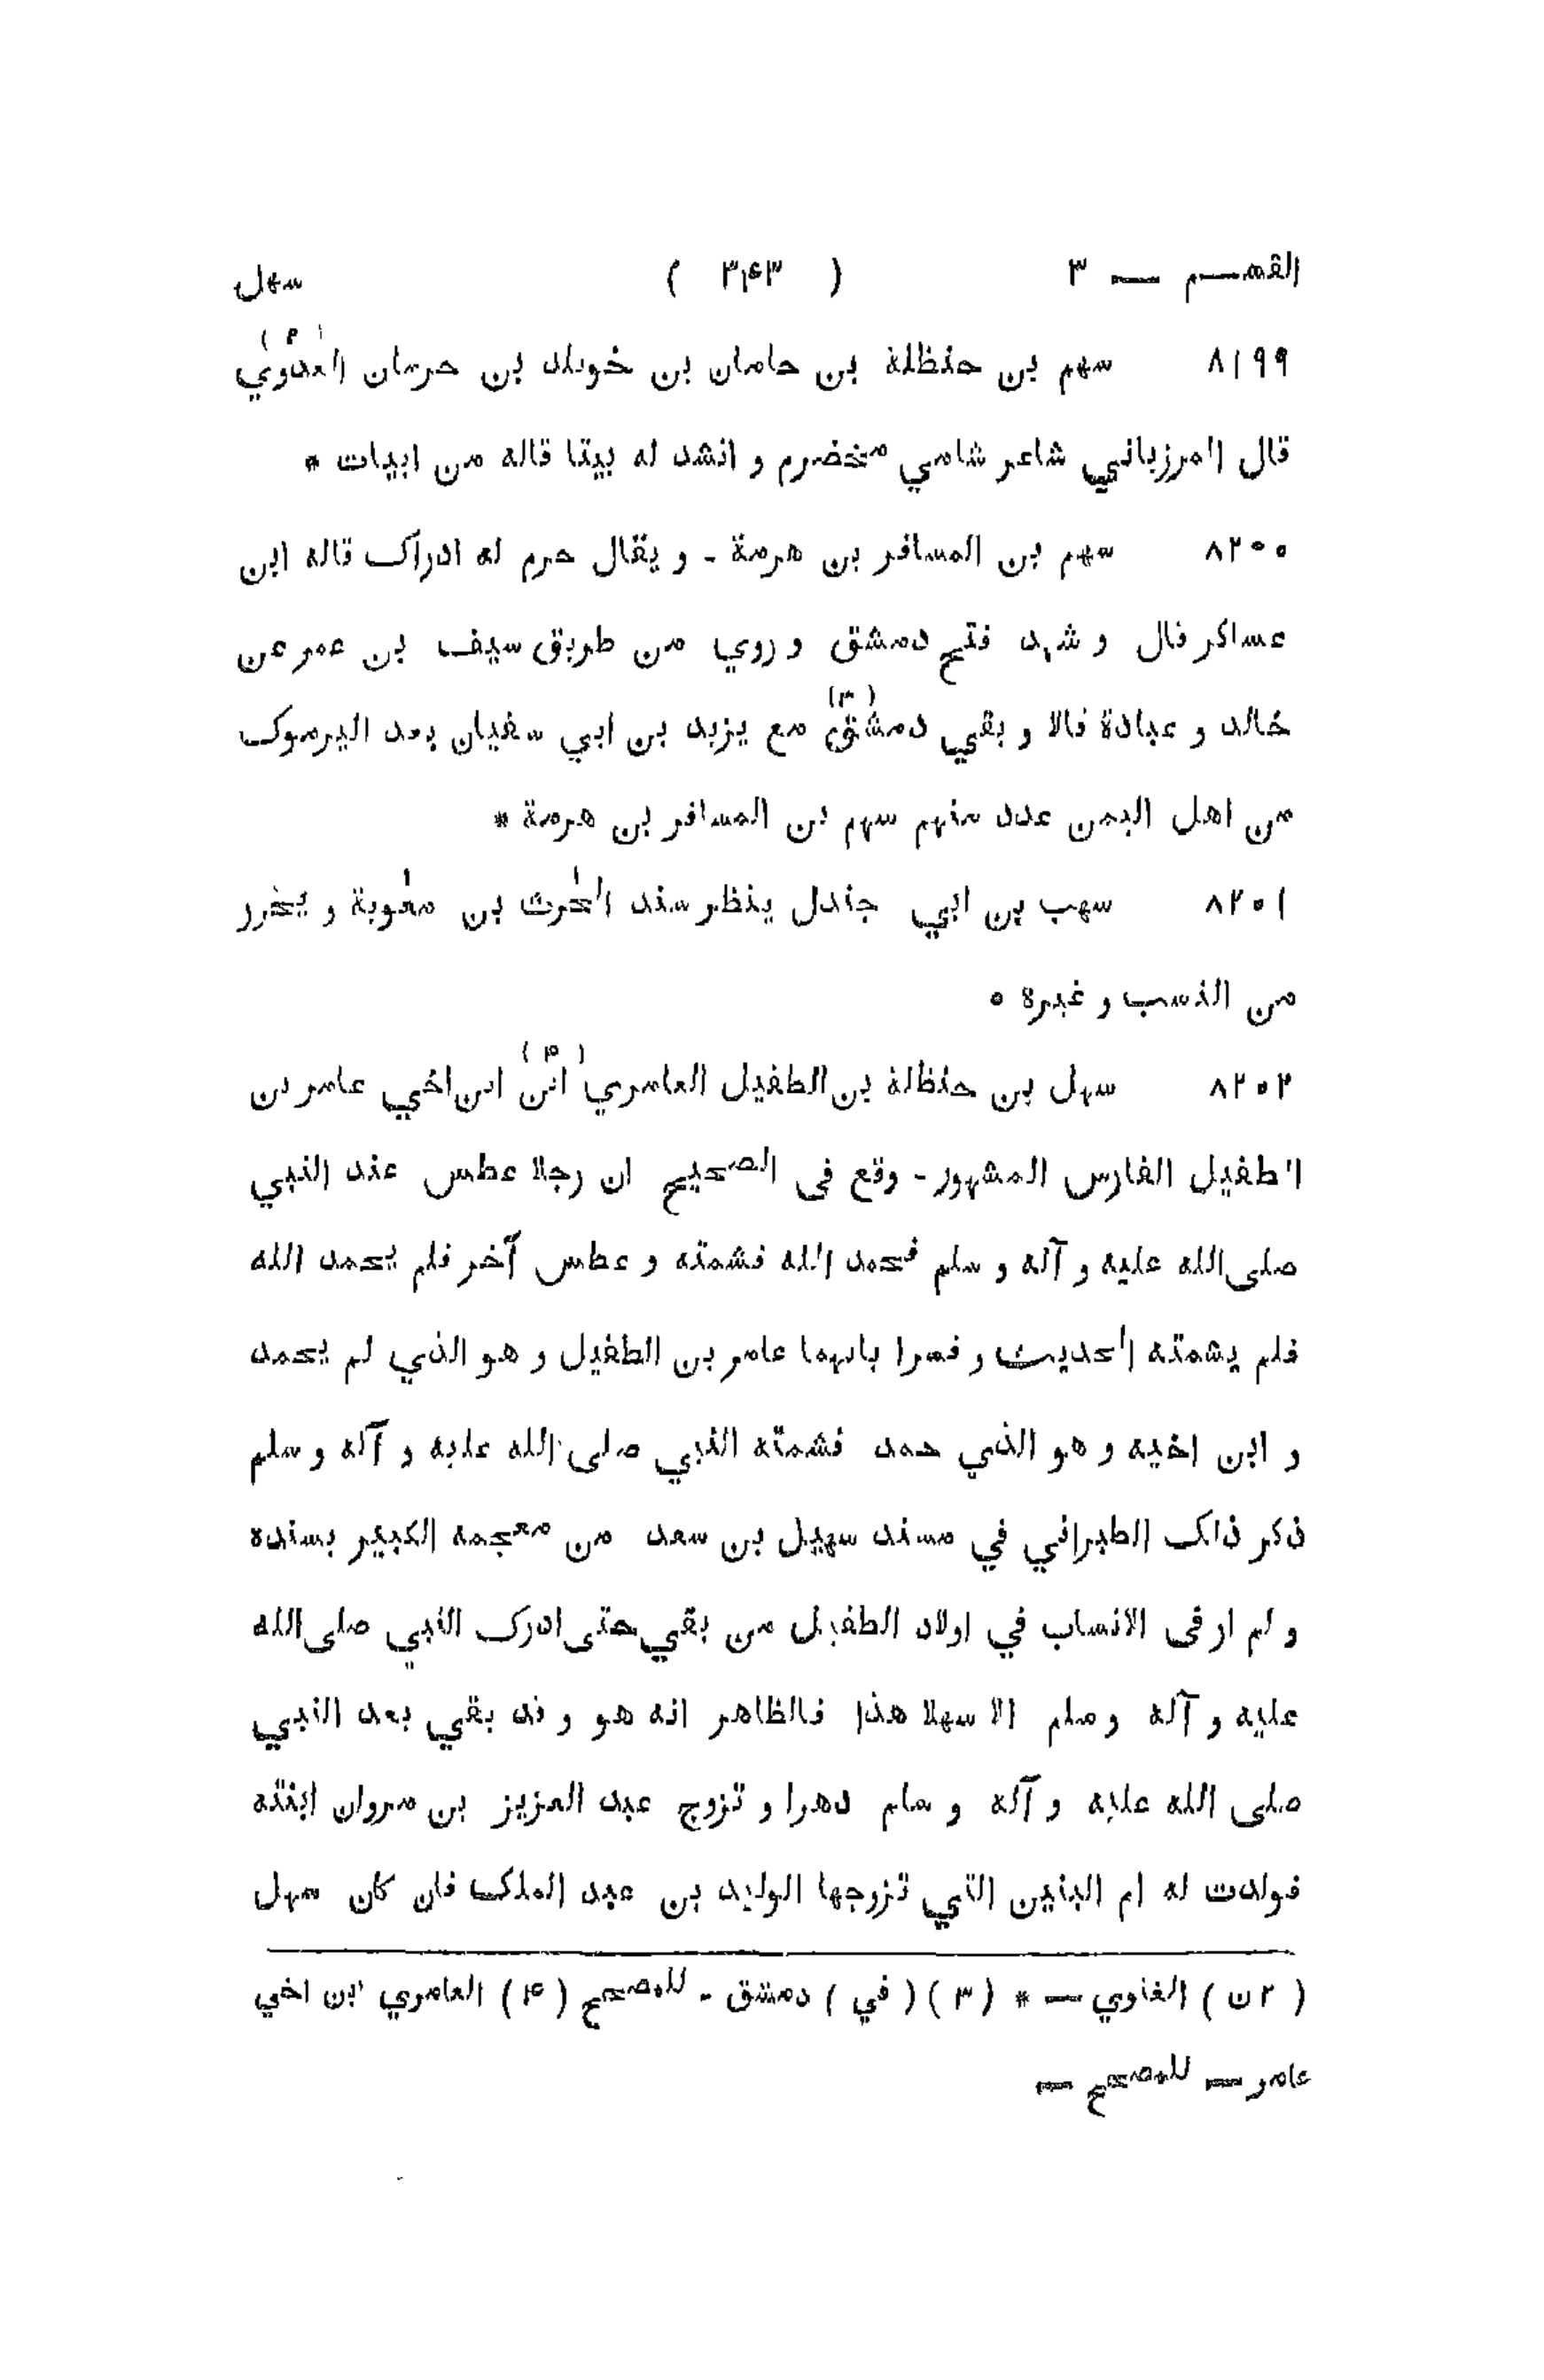 القسم — ٣ ( ٣٤٣ ) سهل
٨١٩٩ سهم بن حنظلة بن حامان بن خويلد بن حرمان العدوي (٢)
قال المرزباني شاعر شامي مخضرم و انشد له بيتا قاله من ابيات *
٨٢٠٠ سهم بن المسافر بن هرمة - و يقال حرم له ادراك قاله ابن
عساكر قال و شهد فتح دمشق و روي من طريق سيف بن عمر عن
خالد و عبادة قالا و بقي دمشق (٣) مع يزيد بن ابي سفيان بعد اليرموك
من اهل اليمن عدد منهم سهم بن المسافر بن هرمة *
٨٢٠١ سهب بن ابي جندل ينظر سند الحٰرث بن معٰوية و يحرر
من النسب و غيره *
٨٢٠٢ سهل بن حنظلة بن الطفيل العامري ابن (٤) ابن اخي عامر بن
الطفيل الفارس المشهور - وقع فى الصحيح ان رجلا عطس عند النبي
صلى الله عليه و آله و سلم فحمد الله فشمته و عطس آخر فلم يحمد الله
فلم يشمته الحديث و فسرا بانهما عامر بن الطفيل و هو الذي لم يحمد
و ابن اخيه و هو الذي حمد فشمته النبي صلى الله عليه و آله و سلم
ذكر ذلك الطبراني في مسند سهيل بن سعد من معجمه الكبير بسنده
و لم ار فى الانساب في اولاد الطفيل من بقي حتى ادرك النبي صلى الله
عليه و آله و سلم الا سهلا هذا فالظاهر انه هو و قد بقي بعد النبي
صلى الله عليه و آله و سلم دهرا و تزوج عبد العزيز بن مروان ابنته
فولدت له ام البنين التي تزوجها الوليد بن عبد الملك فان كان سهل
( ٢ ن ) الغنوي — * ( ٣ ) ( في ) دمشق - للمصحح ( ٤ ) العامري ابن اخي
عامر — للمصحح —